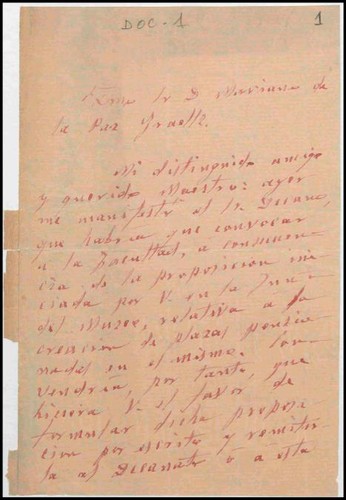 DOC-1
1
Exmo Sr D. Mariano de
la Paz Graells.
Mi distinguido amigo
y querido Maestro: ayer
me manifestó el Sr. Decano,
que habria que convocar
a la Facultad, a consecuen
cia de la proposicion ini
ciada por V. en la Junta
del Museo, relativa a la
creacion de plazas pensio
nadas en el mismo. Con
vendría, por tanto, que
hiciera V. el favor de
formular dicha proposi
cion por escrito y remitir
la al Decanato ó a esta